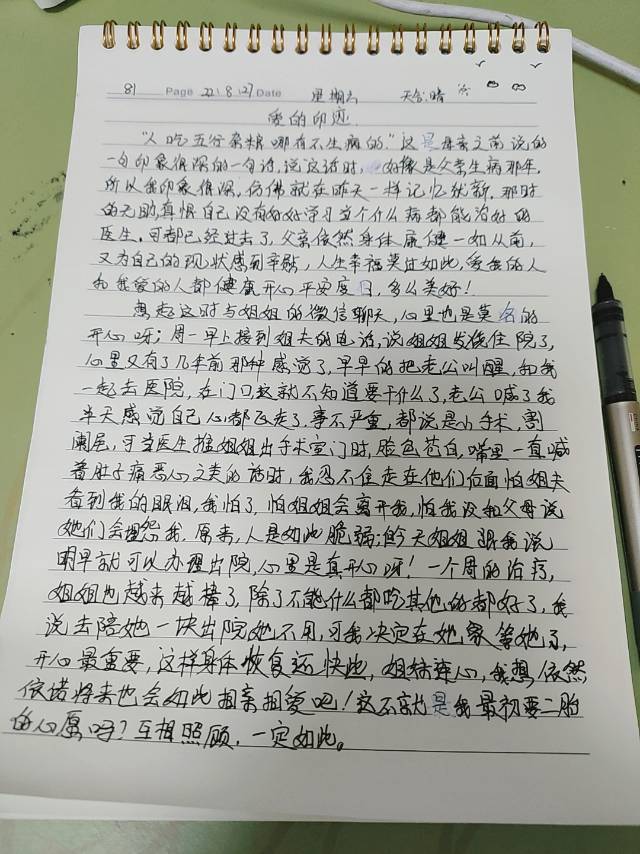 81 Page 22.8.27 Date 星期六 天气:晴
爱的印迹
"人吃五行杂粮哪有不生病的."这是母亲之前说的
一句印象很深的一句话,说这话时,好像是父亲生病那年.
所以我印象很深,仿佛就在昨天一样记忆犹新.那时
的无助,真恨自己没有好好学习当个什么病都能治好的
医生.可都已经过去了,父亲依然身体康健一如从前,
又为自己的现状感到幸福,人生幸福莫过如此,爱我的人
和我爱的人都健康开心平安度日,多么美好!
想起这时与姐姐的微信聊天,心里也是莫名的
开心呀;周一早上接到姐夫的电话,说姐姐发烧住院了,
心里又有了几年前那种感觉了,早早的把老公叫醒,和我
一起去医院,在门口这就不知道要干什么了,老公喊了我
半天感觉自己心都飞走了.事不严重,都说是小手术,割
阑尾,可当医生推姐姐出手术室门时,脸色苍白,嘴里一直喊
着肚子痛恶心之类的话时,我忍不住走在他们后面怕姐夫
看到我的眼泪,我怕了,怕姐姐会离开我,怕我没和父母说
她们会埋怨我.原来,人是如此脆弱;今天姐姐跟我说
明早就可以办理出院,心里是真开心呀!一个周的治疗,
姐姐也越来越棒了,除了不能什么都吃其他的都好了,我
说去陪她一块出院她不用,可我决定在她家等她了,
开心最重要,这样身体恢复还快些,姐妹连心,我想,依然
依诺将来也会如此相亲相爱吧!这不就是我最初要二胎
的心愿吗?互相照顾.一定如此。